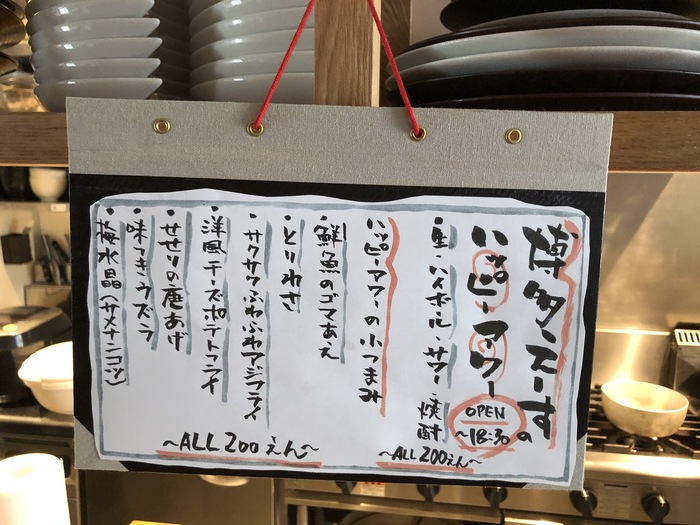 博多えーすの
ハッピーアワー
OPEN
~18:30
・生・ハイボール・サワー・焼酎
~ALL 200えん~
ハッピーアワーの小つまみ
・鮮魚のゴマあえ
・とりわさ
・サクサクふわふわアジフライ
・洋風チーズポテトフライ
・せせりの唐あげ
・味つきウズラ
・梅水晶(サメナンコツ)
~ALL 200えん~